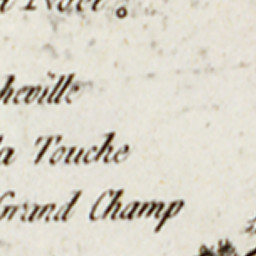 Noel
heville
la Touche
Grand Champ